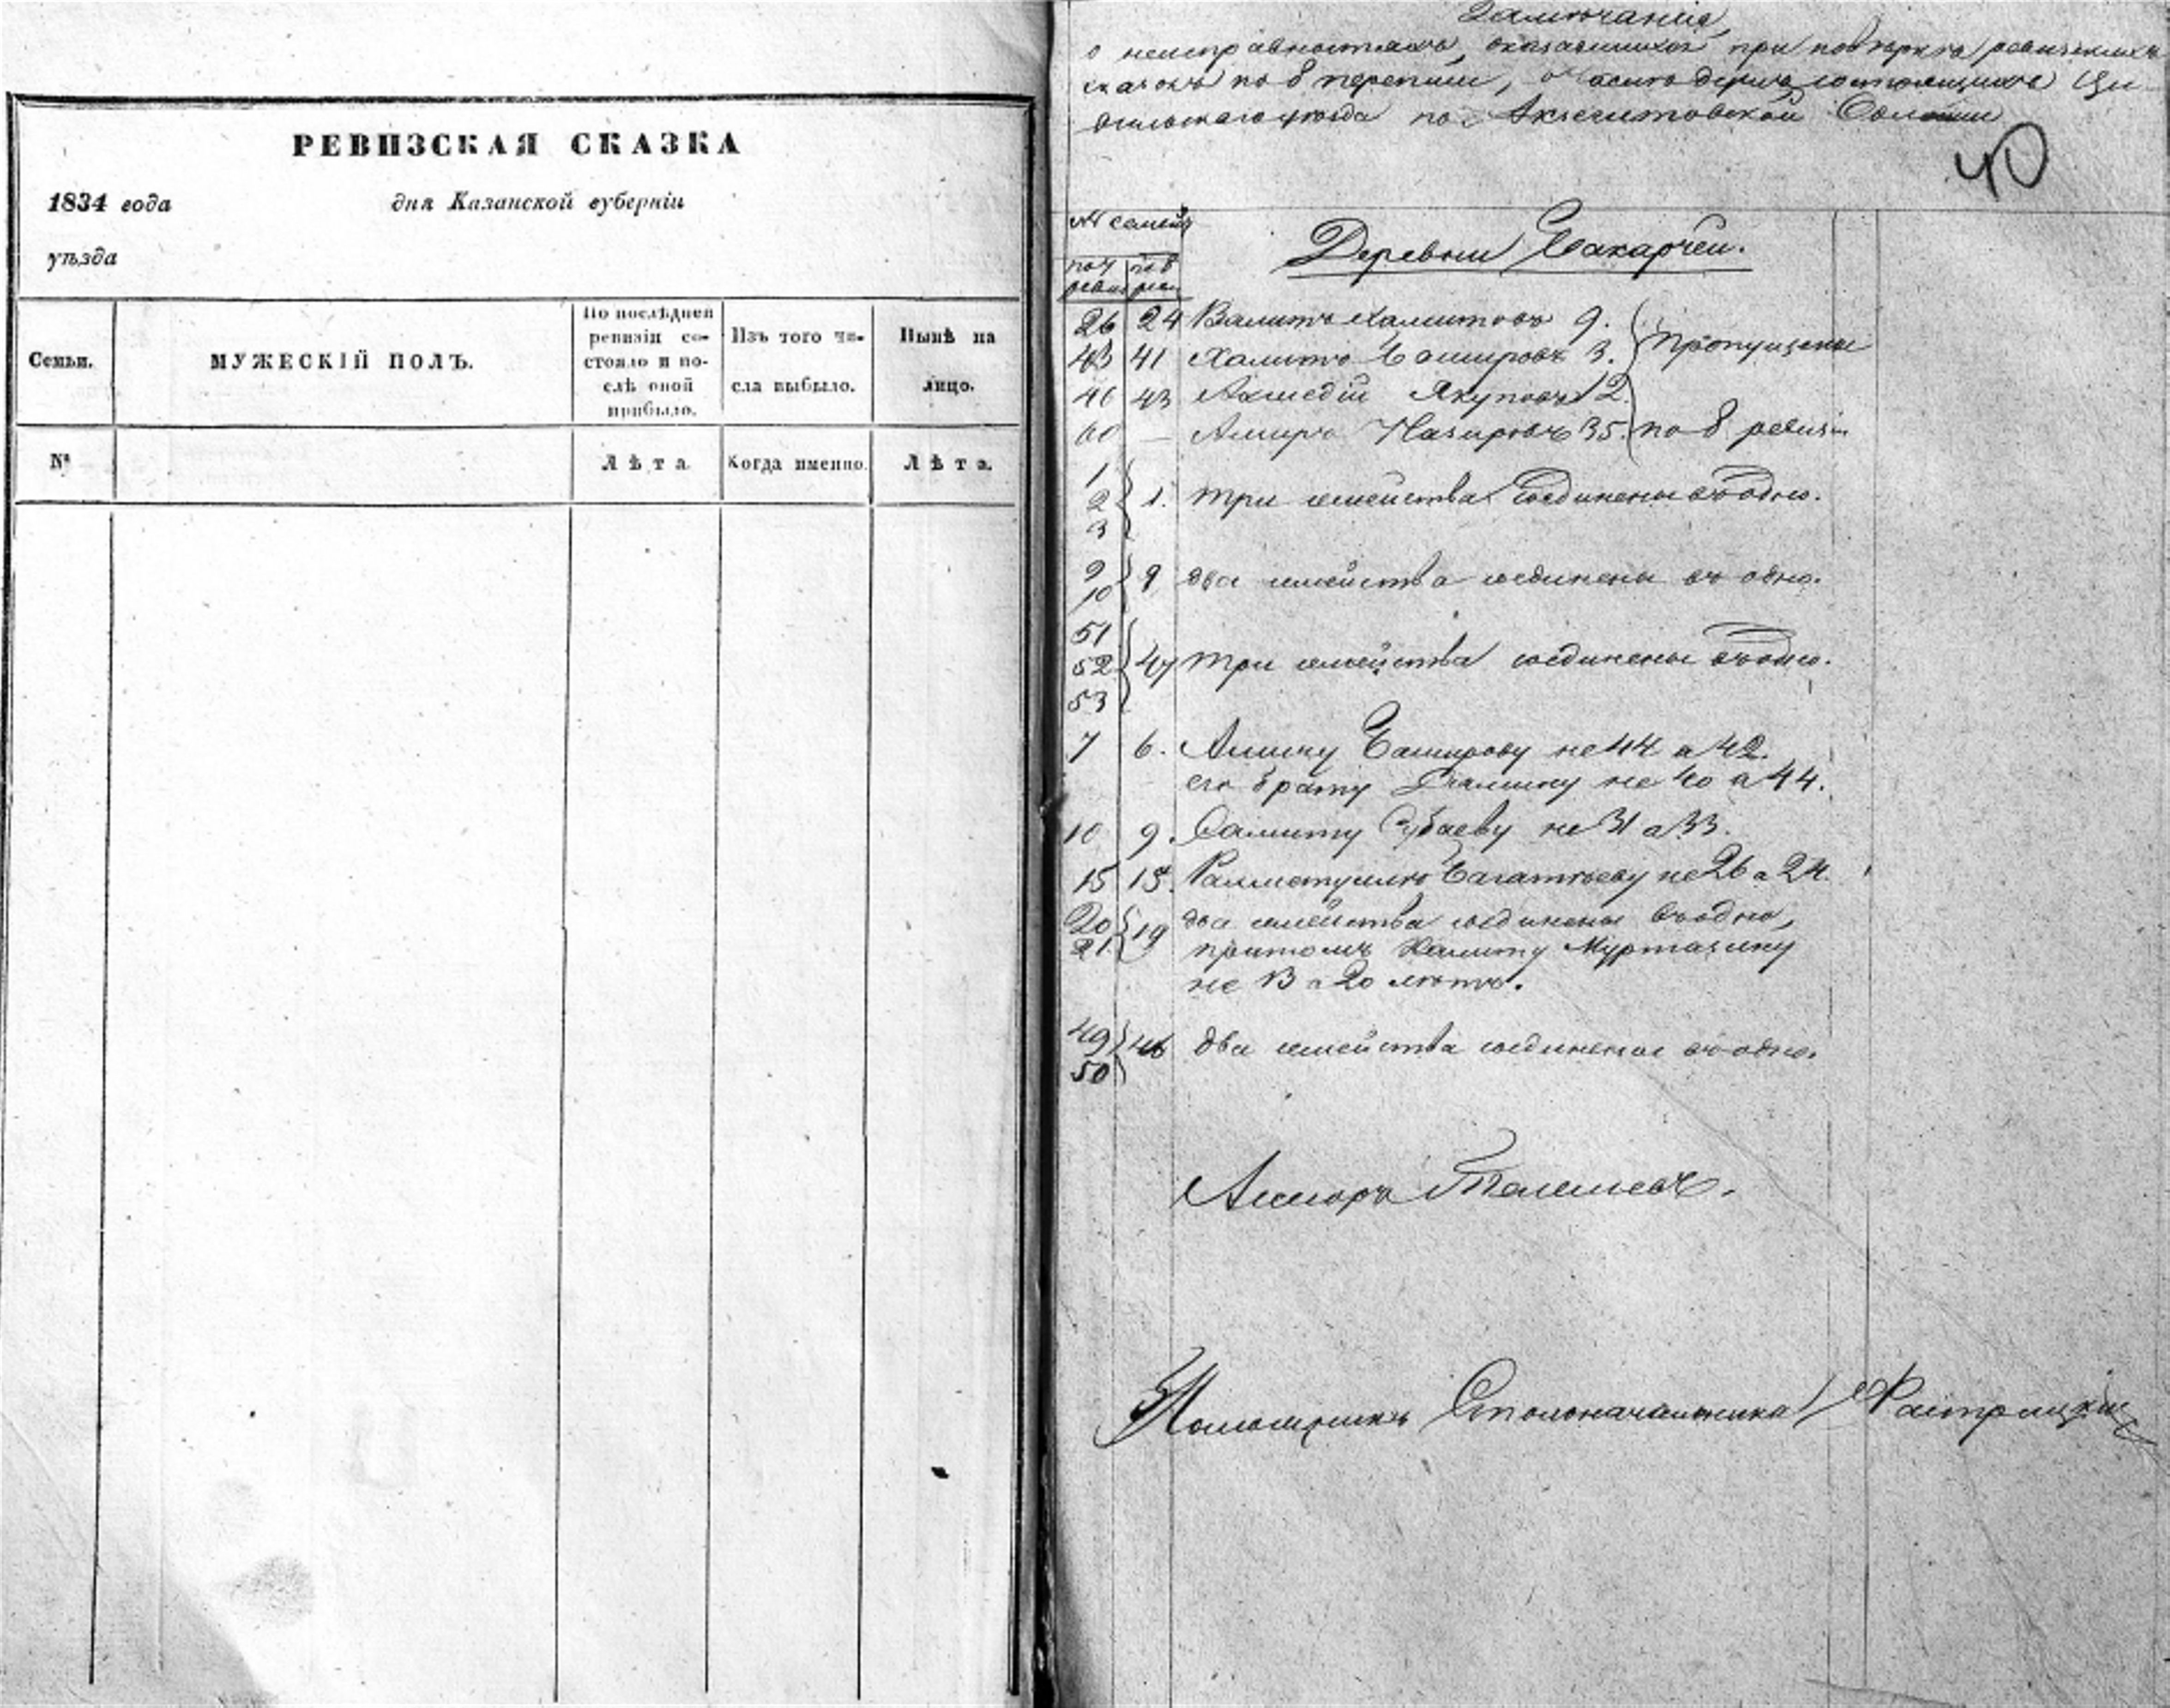 РЕВИЗСКАЯ СКАЗКА
1834 года
дня Казанской губерніи
уѣзда
Семьи.
МУЖЕСКІЙ ПОЛЪ.
По послѣдней ревизіи состояло и послѣ оной прибыло.
Изъ того числа выбыло.
Нынѣ на лицо.
№
Лѣта
Когда именно.
Лѣта.
Замѣчанія
о неисправностяхъ, оказавшихся при повѣркѣ ревизскихъ
сказокъ по 8 переписи, состоящихъ Ци
вильскаго уѣзда по
40
№ семей
по 7 ревиз
по 8 рев
Деревни
26 24 Валитъ Халитовъ 9. Пропущены
43 41 Халитъ Баширов 3.
46 43 Ахмедій Якуповъ 12
60 — Амиръ Назировъ 35. по 8 ревизіи
1
2 1. три семейства соединены въ одно.
3
9 9 два семейства соединены въ одно.
10
51
52 47 три семейства соединены въ одно.
53
7 6. Баширову не 44 а 42.
его брату не 40 а 44.
10 9. не 31 а 33.
15 15. не 26 а 24.
20 19 два семейства соединены въ одно,
21. притомъ Халиту Муртазину
не 13 а 20 лѣтъ.
49 46 два семейства соединены въ одно.
50
Помощникъ Столоначальника